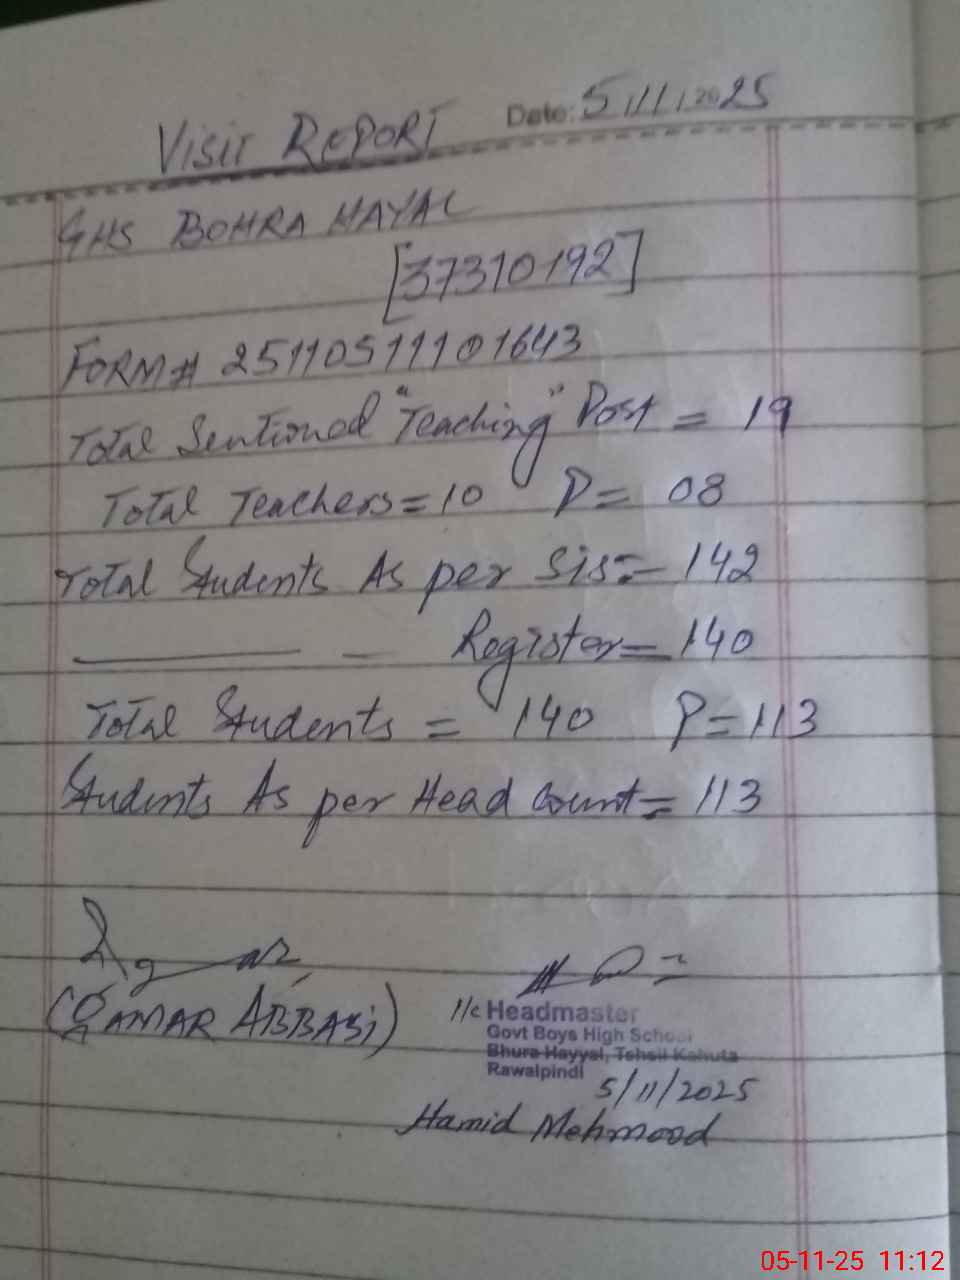 Date: 5/11/2025
VISIT REPORT
GHS BOHRA HAYAL
[37310192]
FORM# 25110511101643
Total Sentioned "Teaching" Post = 19
Total Teachers = 10 P = 08
Total Students As per SIS:- 142
Register = 140
Total Students = 140 P = 113
Students As per Head Count = 113
(QAMAR ABBASi)
I/c Headmaster
Govt Boys High School
Bhura Hayyal, Tehsil Kahuta
Rawalpindi
5/11/2025
Hamid Mehmood
05-11-25 11:12